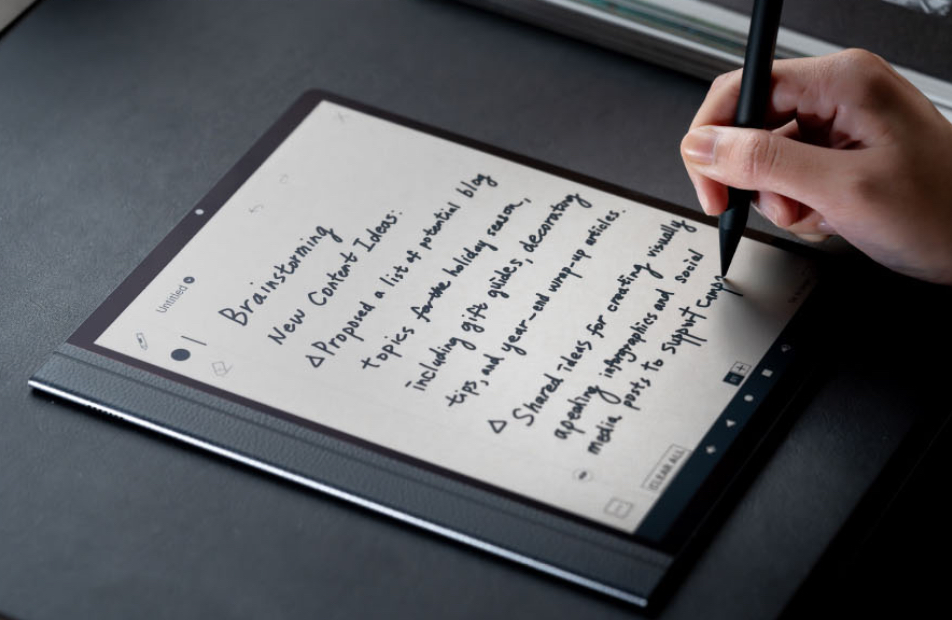 Untitled
Brainstorming
New Content Ideas:
△ Proposed a list of potential blog
topics for the holiday season,
including gift guides, decorating
tips, and year-end wrap-up articles.
△ Shared ideas for creating visually
apealing infographics and social
media posts to support camp
CLEAR ALL